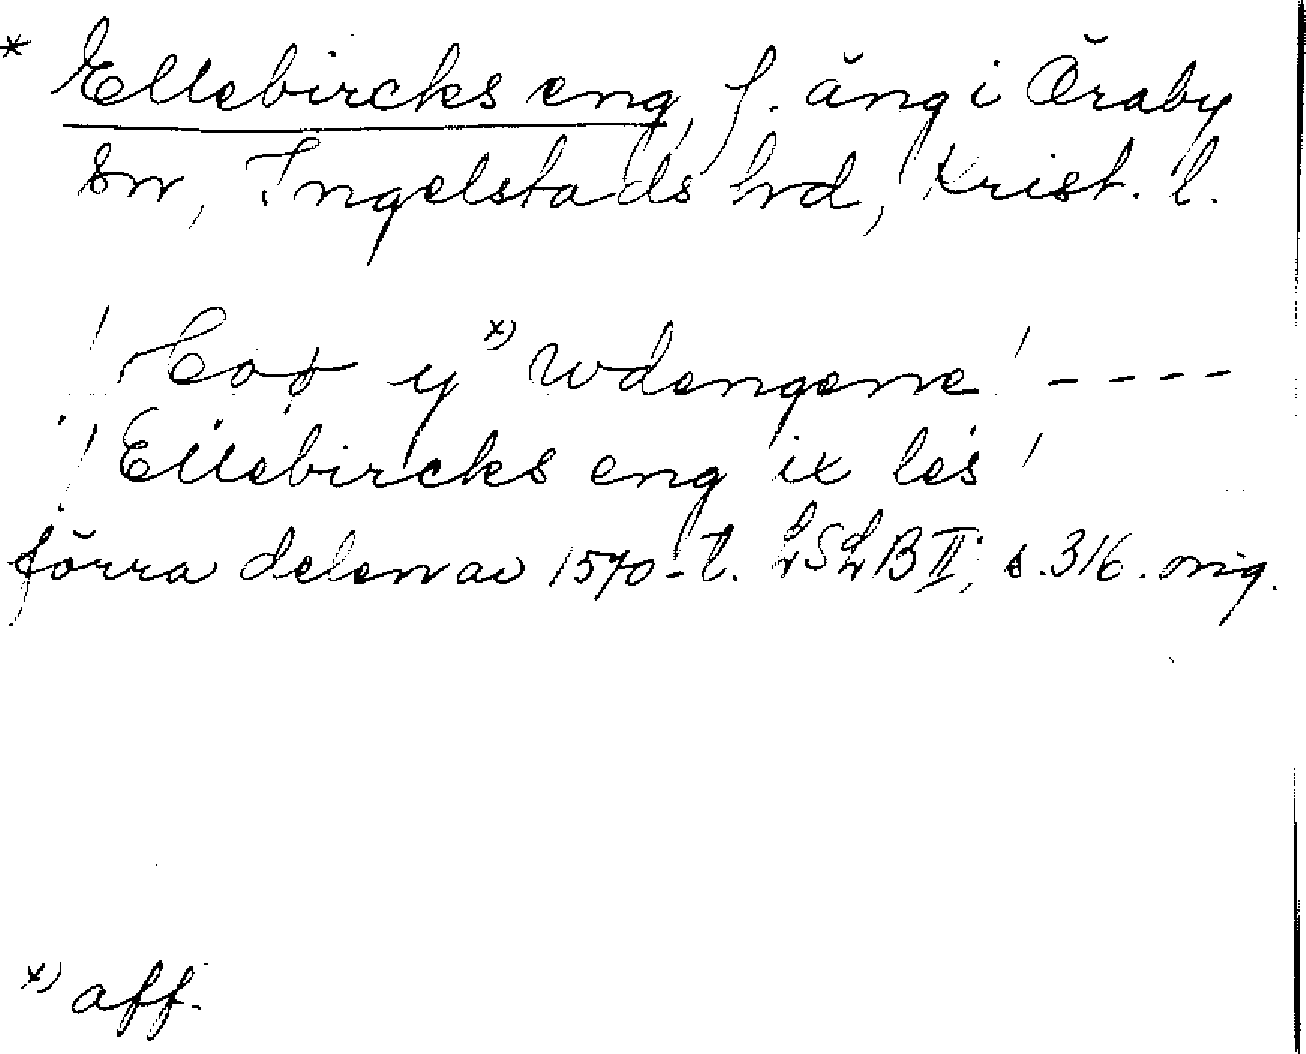 * Ellebircks eng, f. äng i Öraby
sn, Ingelstads hrd, Krist. l.
/ Høø y x) Wdengenne / ----
/ Ellebircks eng ix les /
förra delen av 1570-t. LSLB II, s. 316. orig.
x) aff.